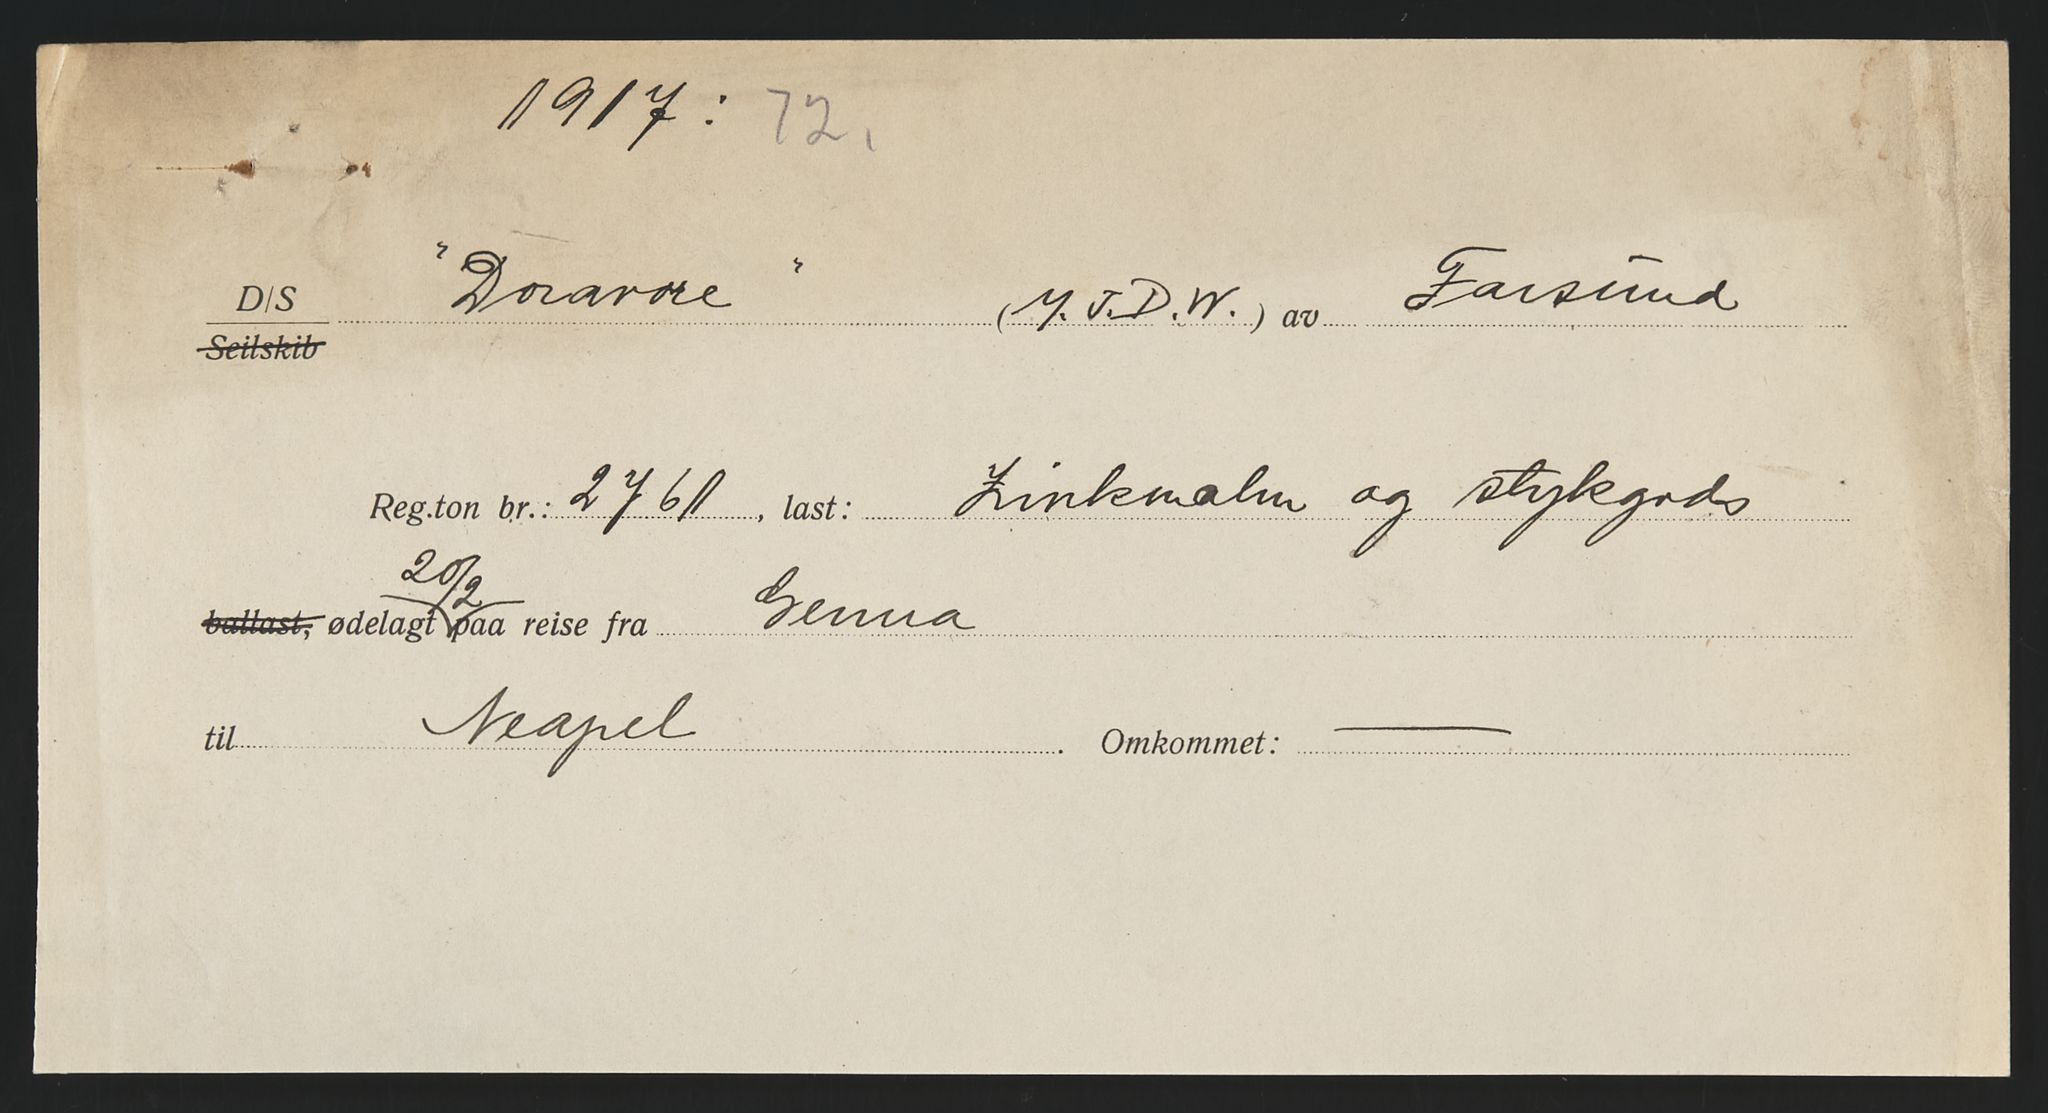 1917: 72.
D/S "Doravore" (M.J.D.W.) av Farsund
Seilskib
Reg.ton br.: 2761, last: Zinkmalm og stykgods
20/2
ballast, ødelagt paa reise fra Genua
til Neapel. Omkommet: —